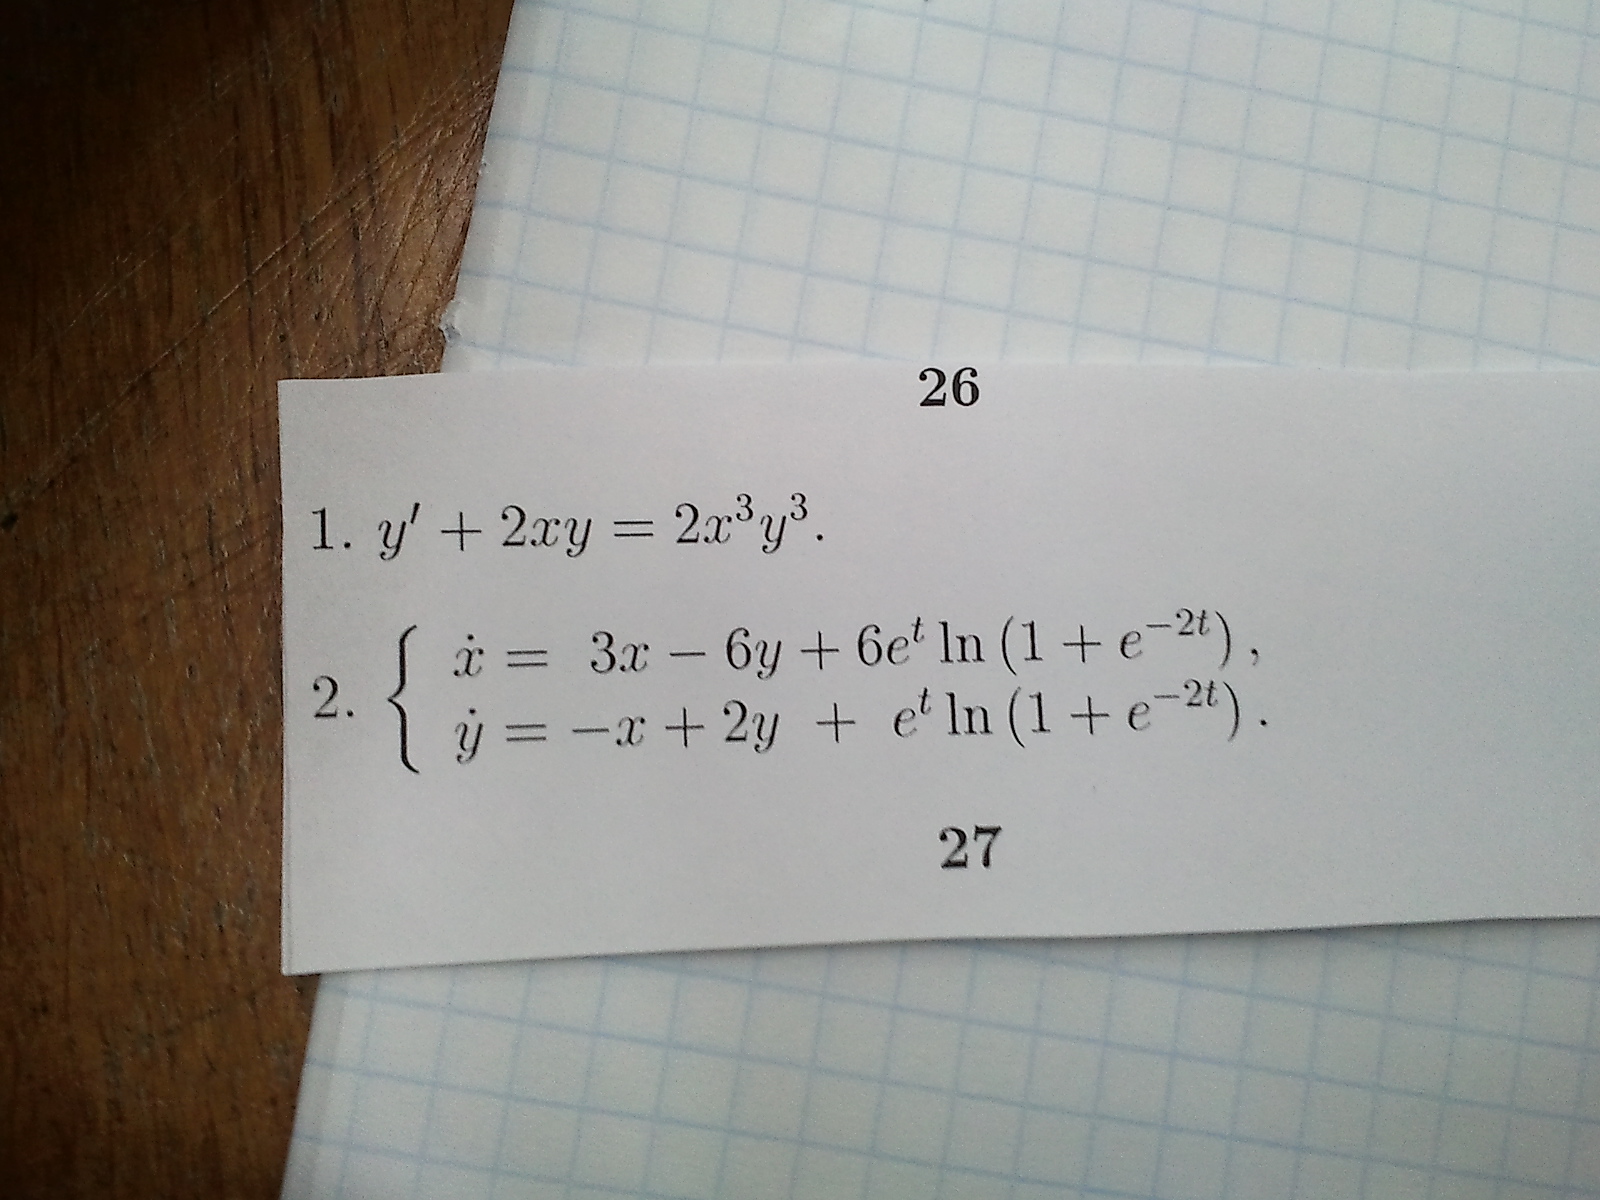 26
1. y′ + 2xy = 2x³y³.
2. { ẋ = 3x − 6y + 6eᵗ ln (1 + e⁻²ᵗ) ,
ẏ = −x + 2y + eᵗ ln (1 + e⁻²ᵗ) .
27